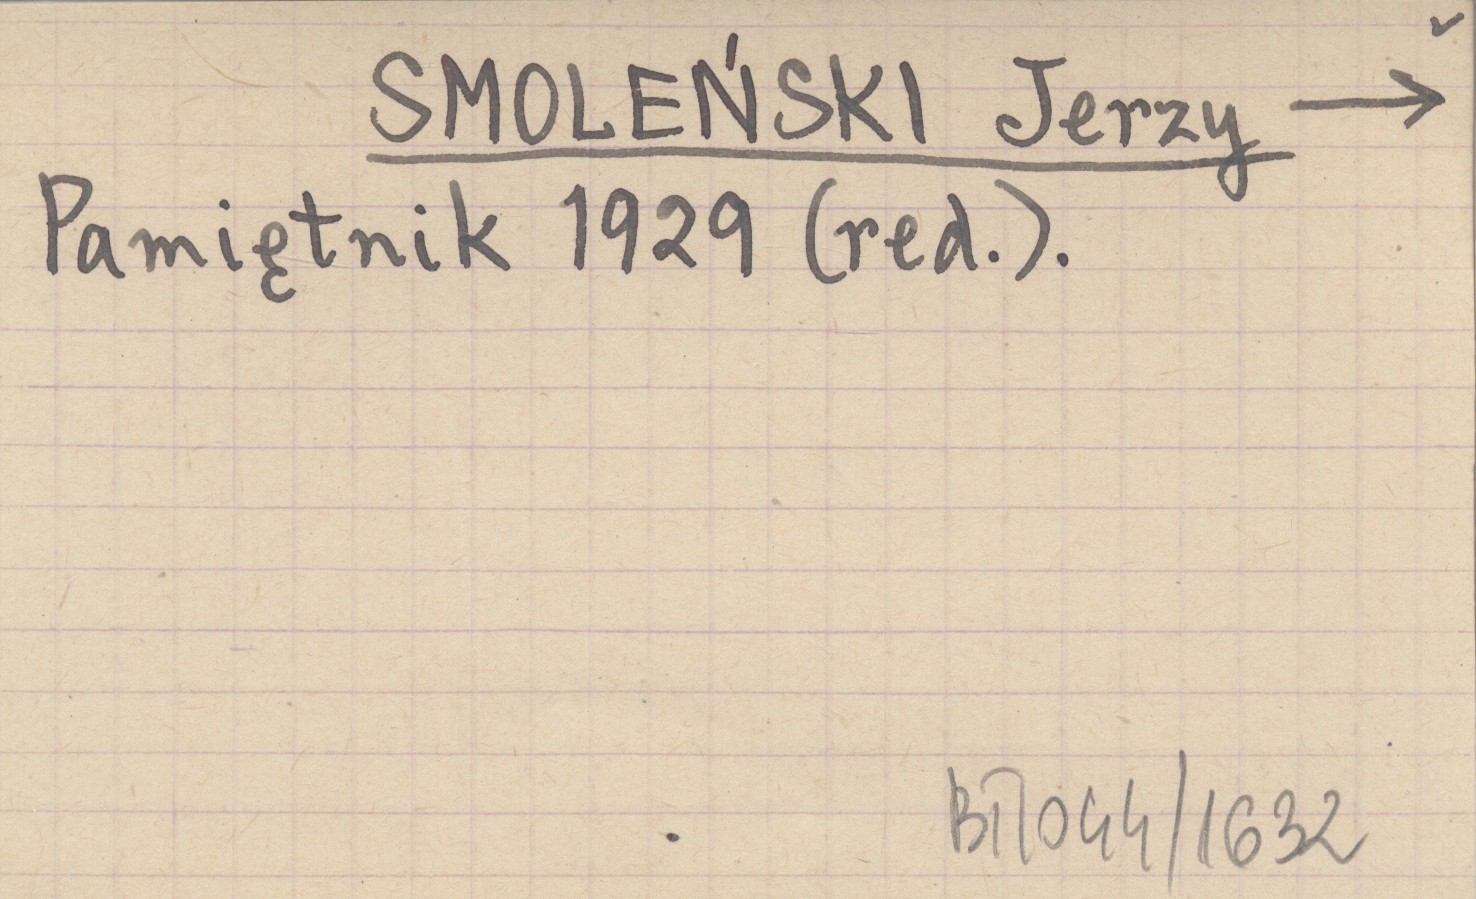 SMOLEŃSKI Jerzy →
Pamiętnik 1929 (red.).
BП044/1632